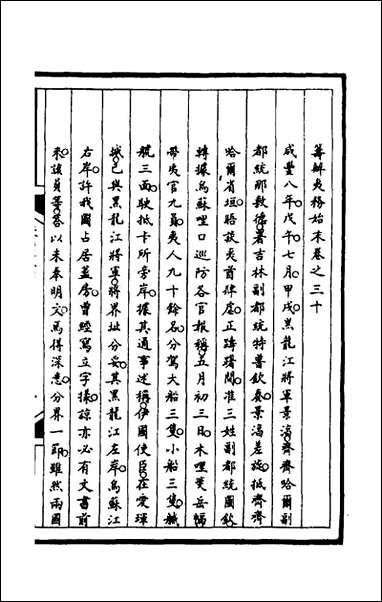 籌辦夷務始末卷之三十
咸豐八年戊午七月甲戌黑龍江將軍景淳齊齊哈爾副
都統那敷德署吉林副都統特普欽奏景淳差旋抵齊齊
哈爾省垣晤談夷酋肆虐正躊躇間准三姓副都統圖欽
轉據烏蘇哩口巡防各官報稱五月初三日木哩斐岳幅
帶夷官九員夷人九十餘名分駕大船三隻小船三隻艤
艇三面駛抵卡所旁岸據其通事述稱伊國使臣在愛琿
城已與黑龍江將軍將界址分妥其黑龍江左岸烏蘇江
右岸許我國占居蓋房曾經寫立字樣諒亦必有文書前
來該員等答以未奉明文焉得深悉分界一節雖然兩國